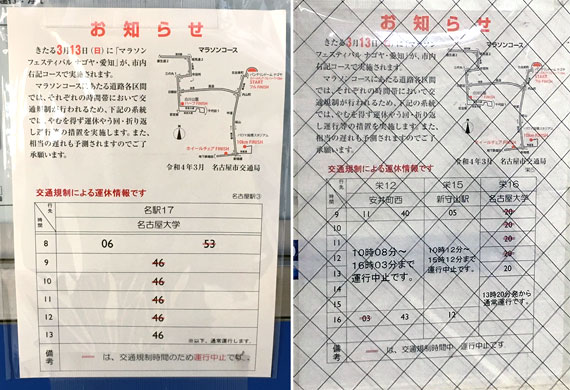 お知らせ
きたる3月13日(日)に「マラソン
フェスティバル ナゴヤ・愛知」が、市内
右記コースで実施されます。
マラソンコースにあたる道路各区間
では、それぞれの時間帯において交
通規制が行われるため、下記の系統
では、やむを得ず運休やう回・折り
返し運行等の措置を実施します。また、
相当の遅れも予測されますのでご了
承願います。
マラソンコース
START
令和4年3月 名古屋市交通局
交通規制による運休情報です
名古屋駅③
行先
時間
名駅17
名古屋大学
8 06 53
9 46
10 46
11 46
12 46
13 46
※以下、通常運行します。
備考
ー は、交通規制時間のため運行中止です。
お知らせ
きたる3月13日(日)に「マラソン
フェスティバル ナゴヤ・愛知」が、市内
右記コースで実施されます。
マラソンコースにあたる道路各区間
では、それぞれの時間帯において交
通規制が行われるため、下記の系統
では、やむを得ず運休やう回・折り
返し運行等の措置を実施します。また、
相当の遅れも予測されますのでご了
承願います。
マラソンコース
START
令和4年3月 名古屋市交通局
交通規制による運休情報です
行先
時間
栄12 栄15 栄16
安井町西 新守山駅 名古屋大学
9 11 40 05 20
10 20
11 20
12 20
13
14
15
16 03 43 12
10時08分～
16時03分まで
運行中止です。
10時12分～
15時12分まで
運行中止です。
13時20分発から
通常運行です。
備考
ー は、交通規制時間のため運行中止です。